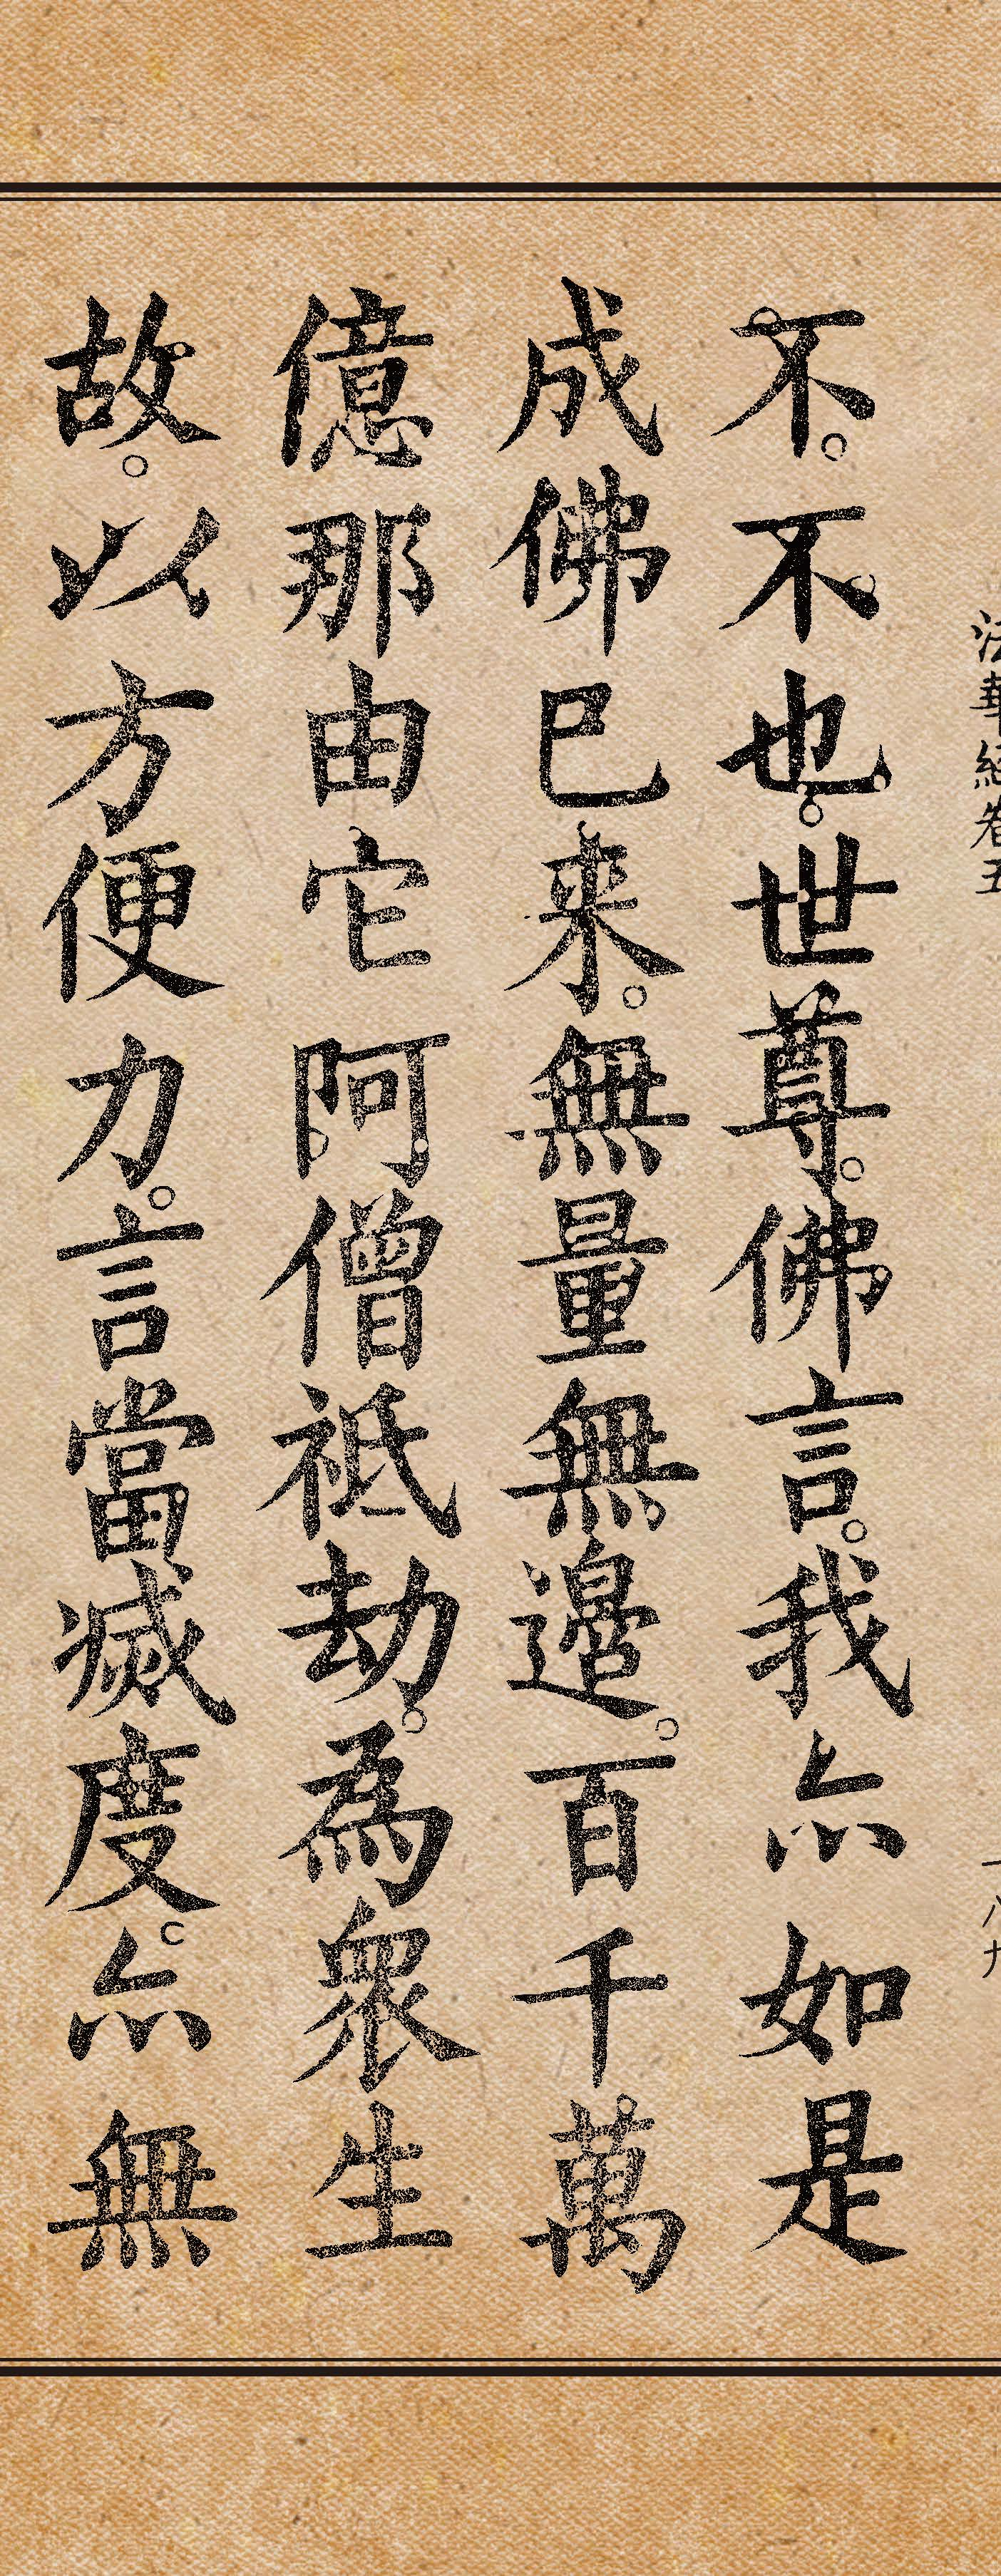 法華經卷五
一八九
不。不也。世尊。佛言。我亦如是
成佛已来。無量無邊。百千萬
億那由它阿僧祇劫。為眾生
故。以方便力。言當滅度。亦無